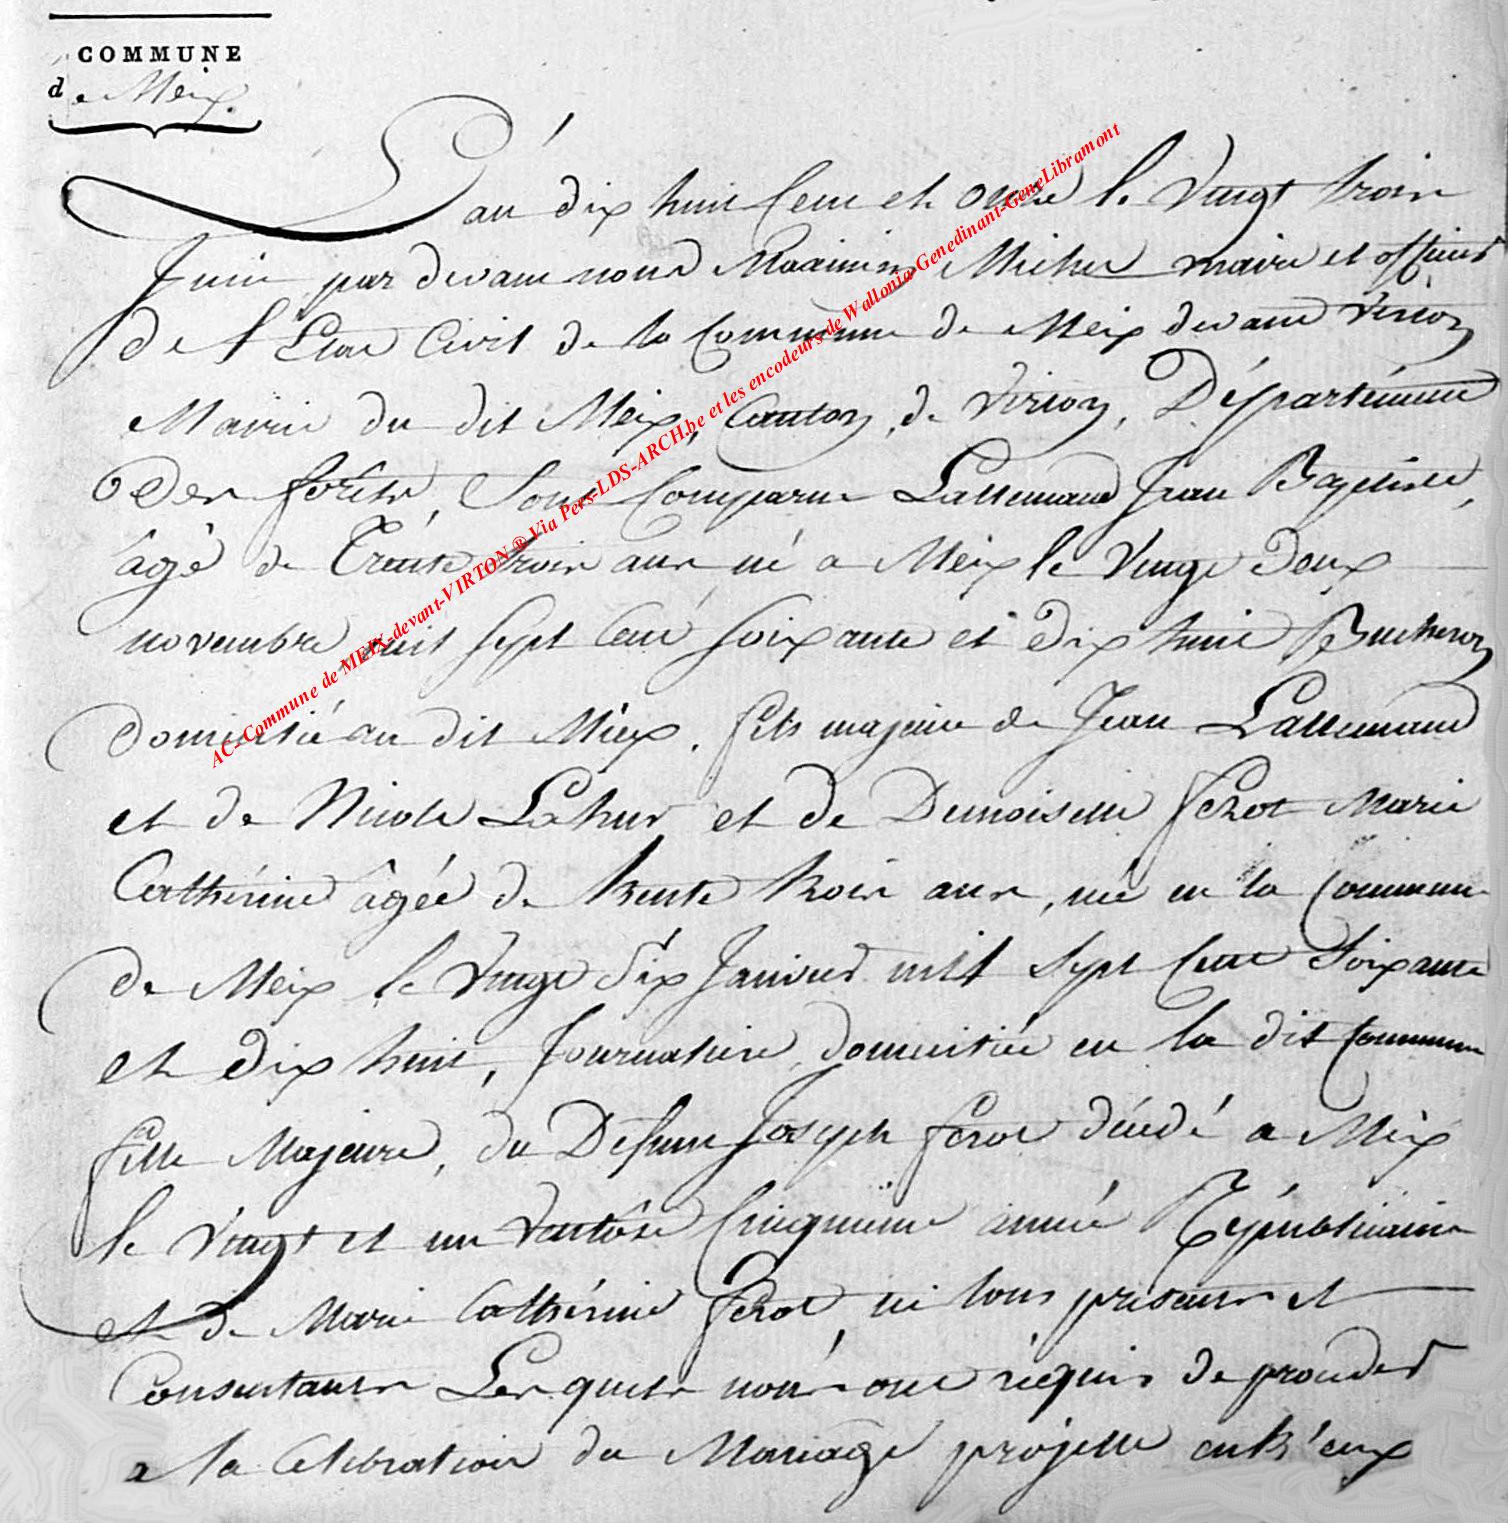 COMMUNE
de Meix.
L'an dix huit Cent et onze le Vingt trois
Juin par devant nous Maximin Michel maire et officier
de l'Etat Civil de la Commune de Meix devant Virton
Mairie du dit Meix, Canton de Virton, Département
des forêts, Sont Comparus Lallemand Jean Baptiste,
âgé de Trente trois ans né a Meix le Vingt deux
novembre mil sept Cent soixante et dix huit Bucheron
domicilié au dit Meix, fils majeur de Jean Lallemand
et de Nicole Lahur et de Demoiselle ferot Marie
Cathérine âgée de trente trois ans, née en la Commune
de Meix le Vingt Six Janvier mil sept Cent Soixante
et dix huit, Journalière, domiciliée en la dit Commune
fille Majeure, du Défunt Joseph ferot décédé a Meix
le Vingt et un Ventôse Cinquieme année Républicaine
et de Marie Cathérine ferot, ici tous présents et
Consentants Lesquels nous ont réquis de proceder
a la Célébration du Mariage projetté entr'eux
AC-Commune de MEIX-devant-VIRTON ® Via Pers-LDS-ARCH.be et les encodeurs de Wallonia-Genedinant-GeneLibramont